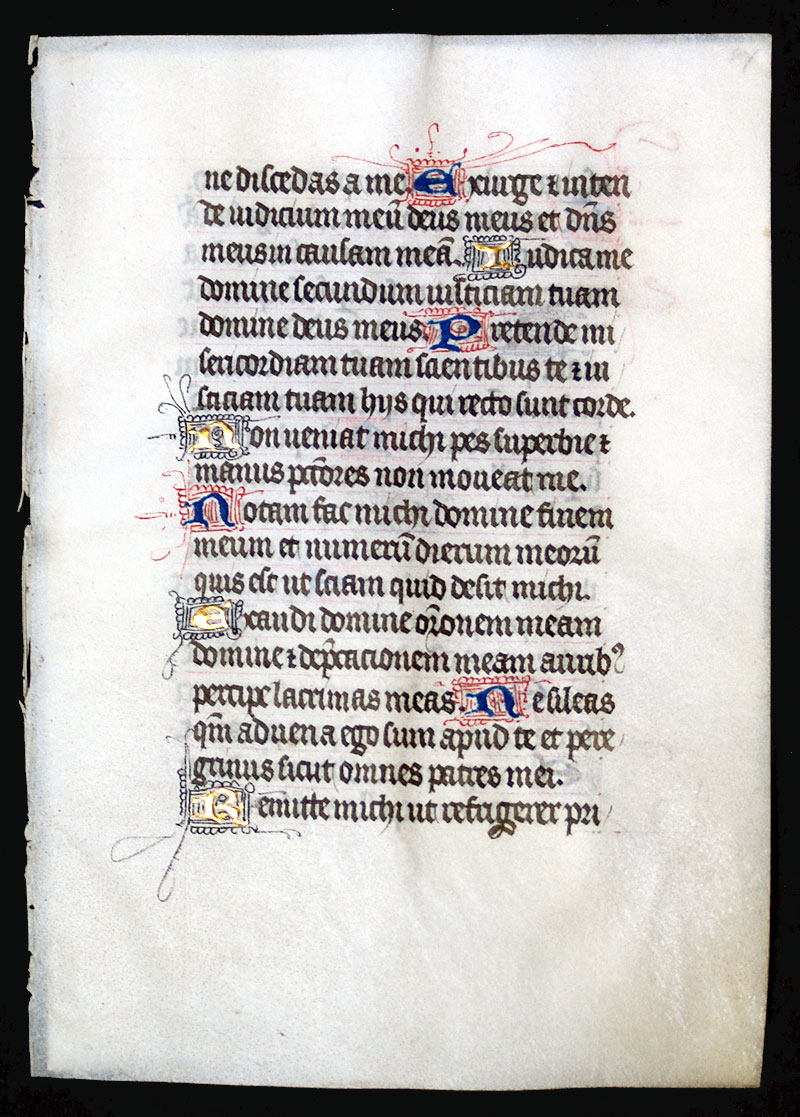 ne discedas a me Exurge ⁊ inten
de iudicium meū deus meus et dn̄s
meus in causam meā. Iudica me
domine secundum iusticiam tuam
domine deus meus. Pretende mi
sericordiam tuam scientibus te ⁊ iu
sticiam tuam hijs qui recto sunt corde.
Non ueniat michi pes superbie ⁊
manus pctores non moueat me.
Notam fac michi domine finem
meum et numerū dierum meorū
quis est ut sciam quid desit michi.
Exaudi domine or̄onem meam
domine ⁊ dep̄cacionem meam aurib⁹
percipe lacrimas meas. Ne sileas
qm̄ aduena ego sum apud te et pere
grinus sicut omnes patres mei.
Remitte michi ut refrigerer pri